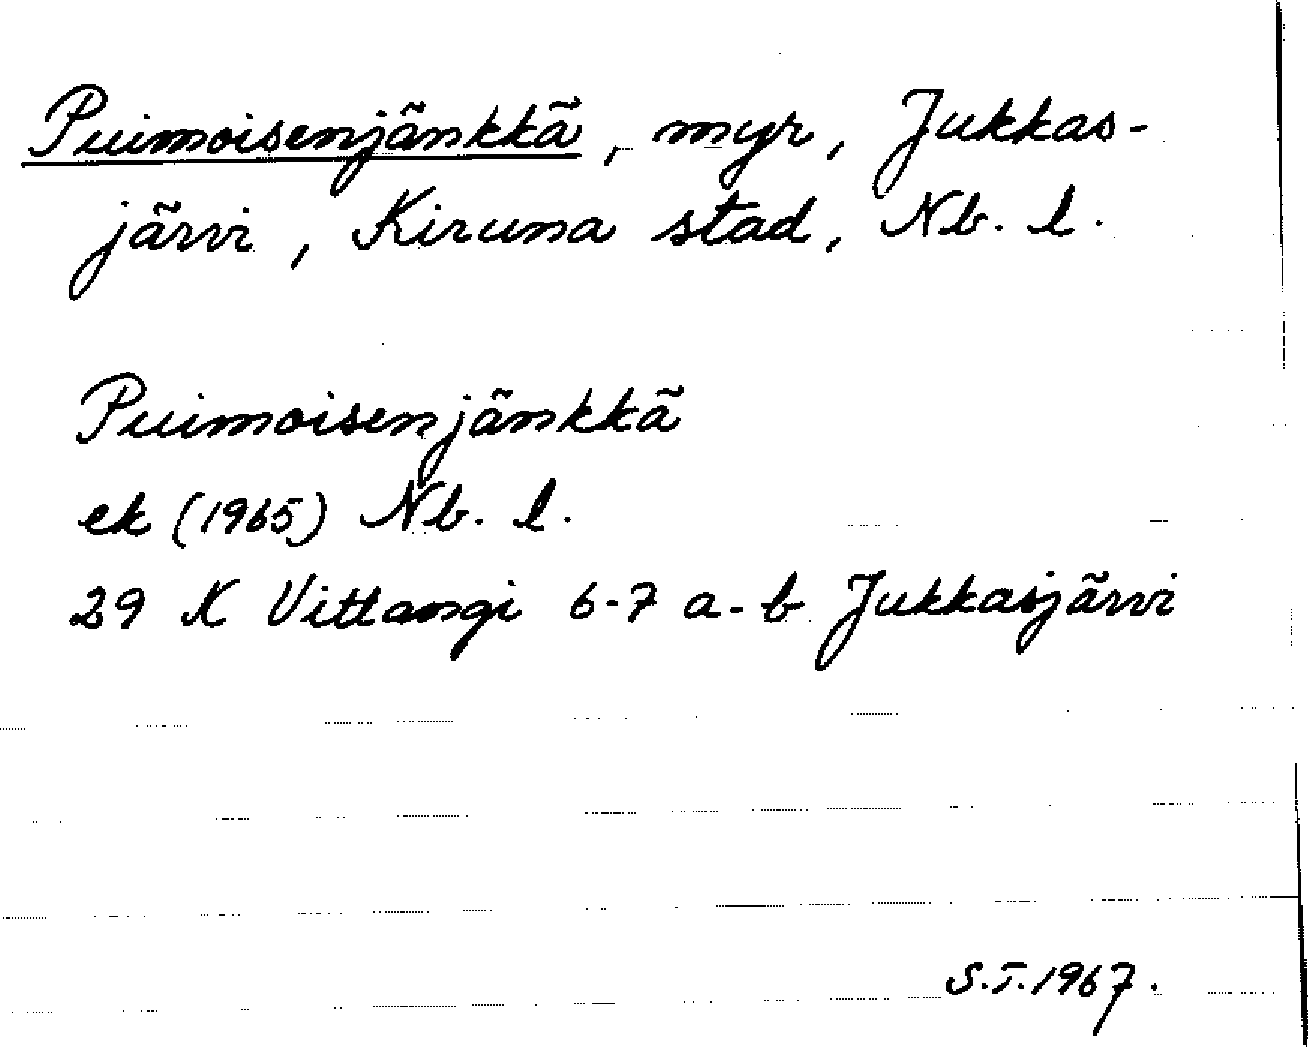 Puimoisenjänkkä, myr, Jukkas-
järvi, Kiruna stad, Nb. l.
Puimoisenjänkkä
ek (1965) Nb. l.
29 K Vittangi 6-7 a-b Jukkasjärvi
S.T. 1967.